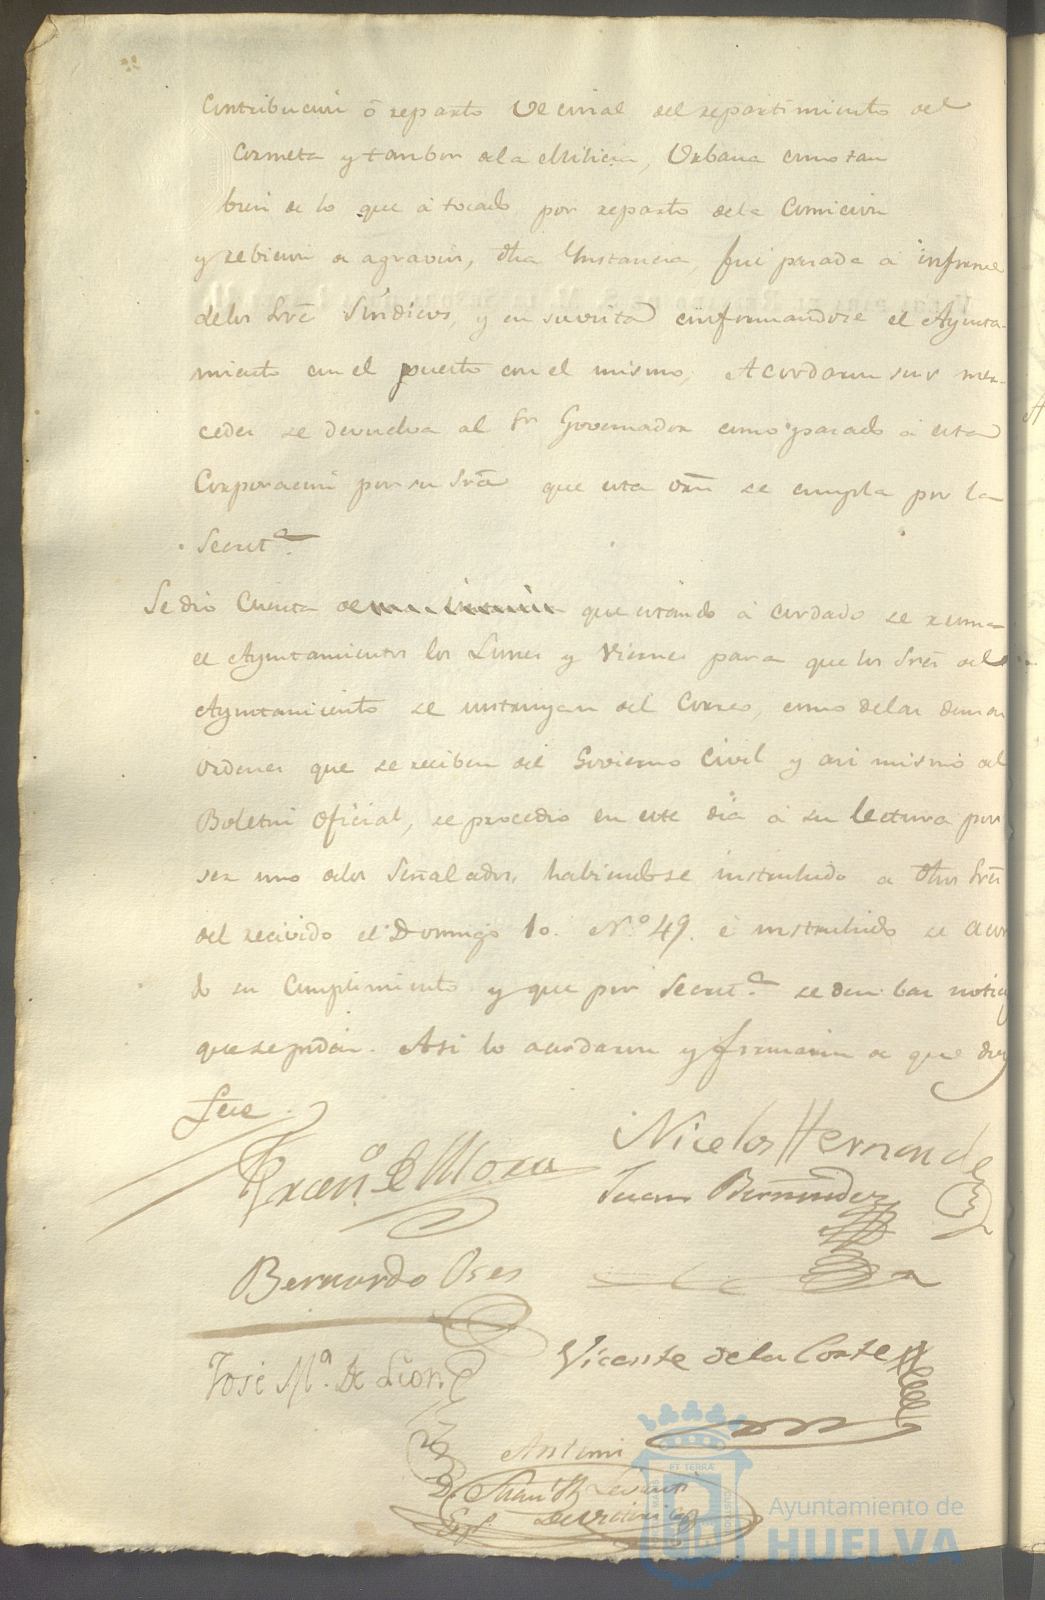 Contribucion ó reparto Vecinal del repartimiento del
Corneta y tambor de la Milicia, Urbana como tan
bien de lo que á tocado por reparto de la Comicion
y rebicion de agravios, dha Ynstancia, fue pasada á informe
de los Sres Sindicos, y en su vista conformandose el Ayunta-
miento con el puesto con el mismo; Acordaron sus mer-
cedes se devuelva al Sr Governador como pasado á esta
Corporacion por su Sria que esta orn se cumpla por la
Secreta.
Se dio Cuenta de que estando á cordado se reuna
el Ayuntamiento los Lunes y Viernes para que los Sres del
Ayuntamiento se instruyan del Correo, como de las demas
ordenes que se reciben del Govierno Civil y asi mismo del
Boletin Oficial, se procedio en este dia á su lectura por
ser uno de los Señalados, habiendose instruhido a dhos Sres
del recivido el Domingo 10. Nº 49. é instruhido se acor
do su Cumplimiento y que por Secreta. se den las notici
que se pidan. Asi lo acordaron y firmaron de que doy
fee.
Francº de Mora
Nicolas Hernandez
Juan Bermudez
Bernardo Oses
José Mª. De Leon
Vicente de la Corte
Antemi
Juan
ET TERRÆ
Ayuntamiento de
HUELVA